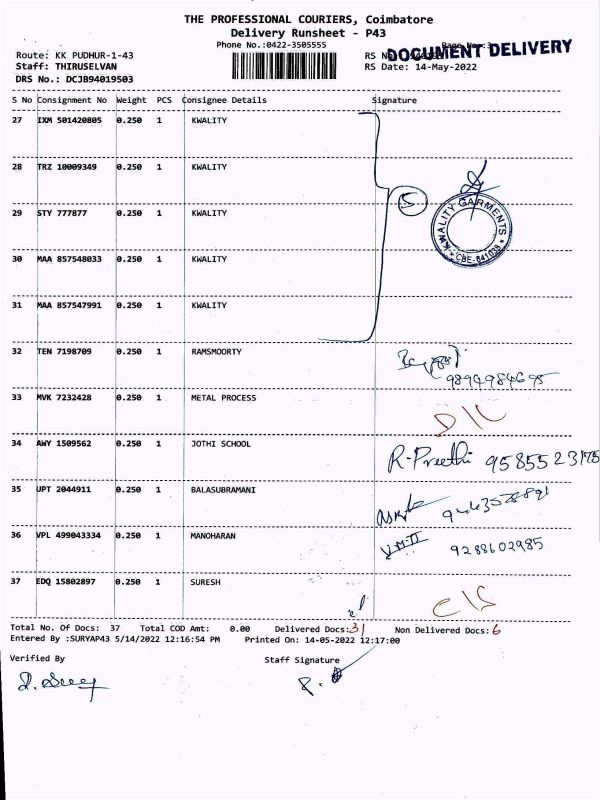 THE PROFESSIONAL COURIERS, Coimbatore
Delivery Runsheet - P43
Phone No.:0422-3505555
DOCUMENT DELIVERY
Route: KK PUDHUR-1-43
RS No
Staff: THIRUSELVAN
RS Date: 14-May-2022
DRS No.: DCJB94019503
S No Consignment No Weight PCS Consignee Details Signature
27 IXM 501420805 0.250 1 KWALITY
28 TRZ 10009349 0.250 1 KWALITY
29 STY 777877 0.250 1 KWALITY
5
KWALITY GARMENTS
* CBE-641038 *
30 MAA 857548033 0.250 1 KWALITY
31 MAA 857547991 0.250 1 KWALITY
32 TEN 7198709 0.250 1 RAMSMOORTY
33 MVK 7232428 0.250 1 METAL PROCESS
34 AWY 1509562 0.250 1 JOTHI SCHOOL R.Preethi
35 UPT 2044911 0.250 1 BALASUBRAMANI
36 VPL 499043334 0.250 1 MANOHARAN 9288602985
37 EDQ 15802897 0.250 1 SURESH
Total No. Of Docs: 37 Total COD Amt: 0.00 Delivered Docs:31 Non Delivered Docs:6
Entered By :SURYAP43 5/14/2022 12:16:54 PM Printed On: 14-05-2022 12:17:00
Verified By Staff Signature